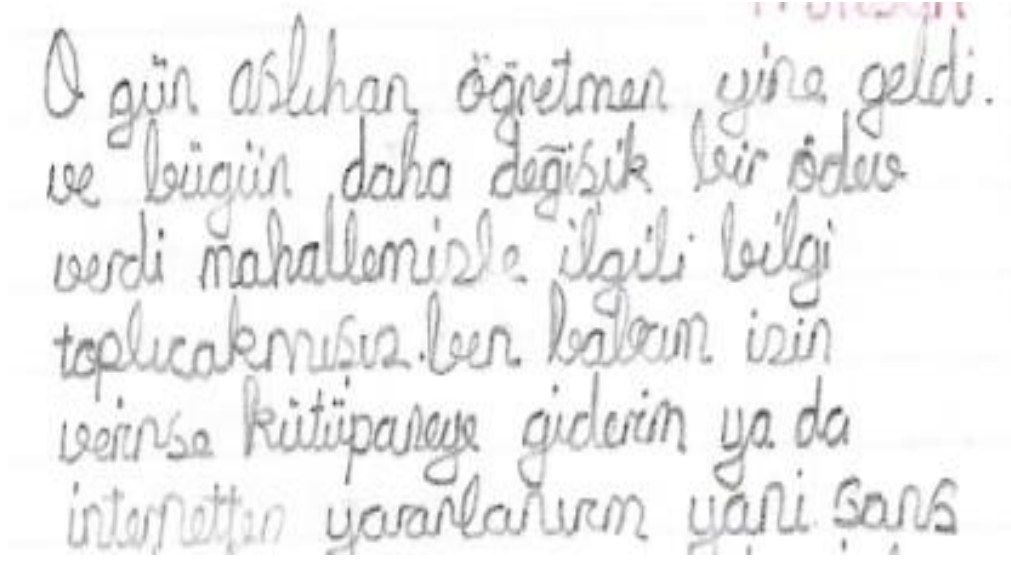 O gün aslıhan öğretmen yine geldi.
ve bügün daha değişik bir ödev
verdi mahallemisle ilgili bilgi
toplıcakmısız. ben babam isin
verirse kütüpaneye giderim ya da
internetten yararlanırım yani sans